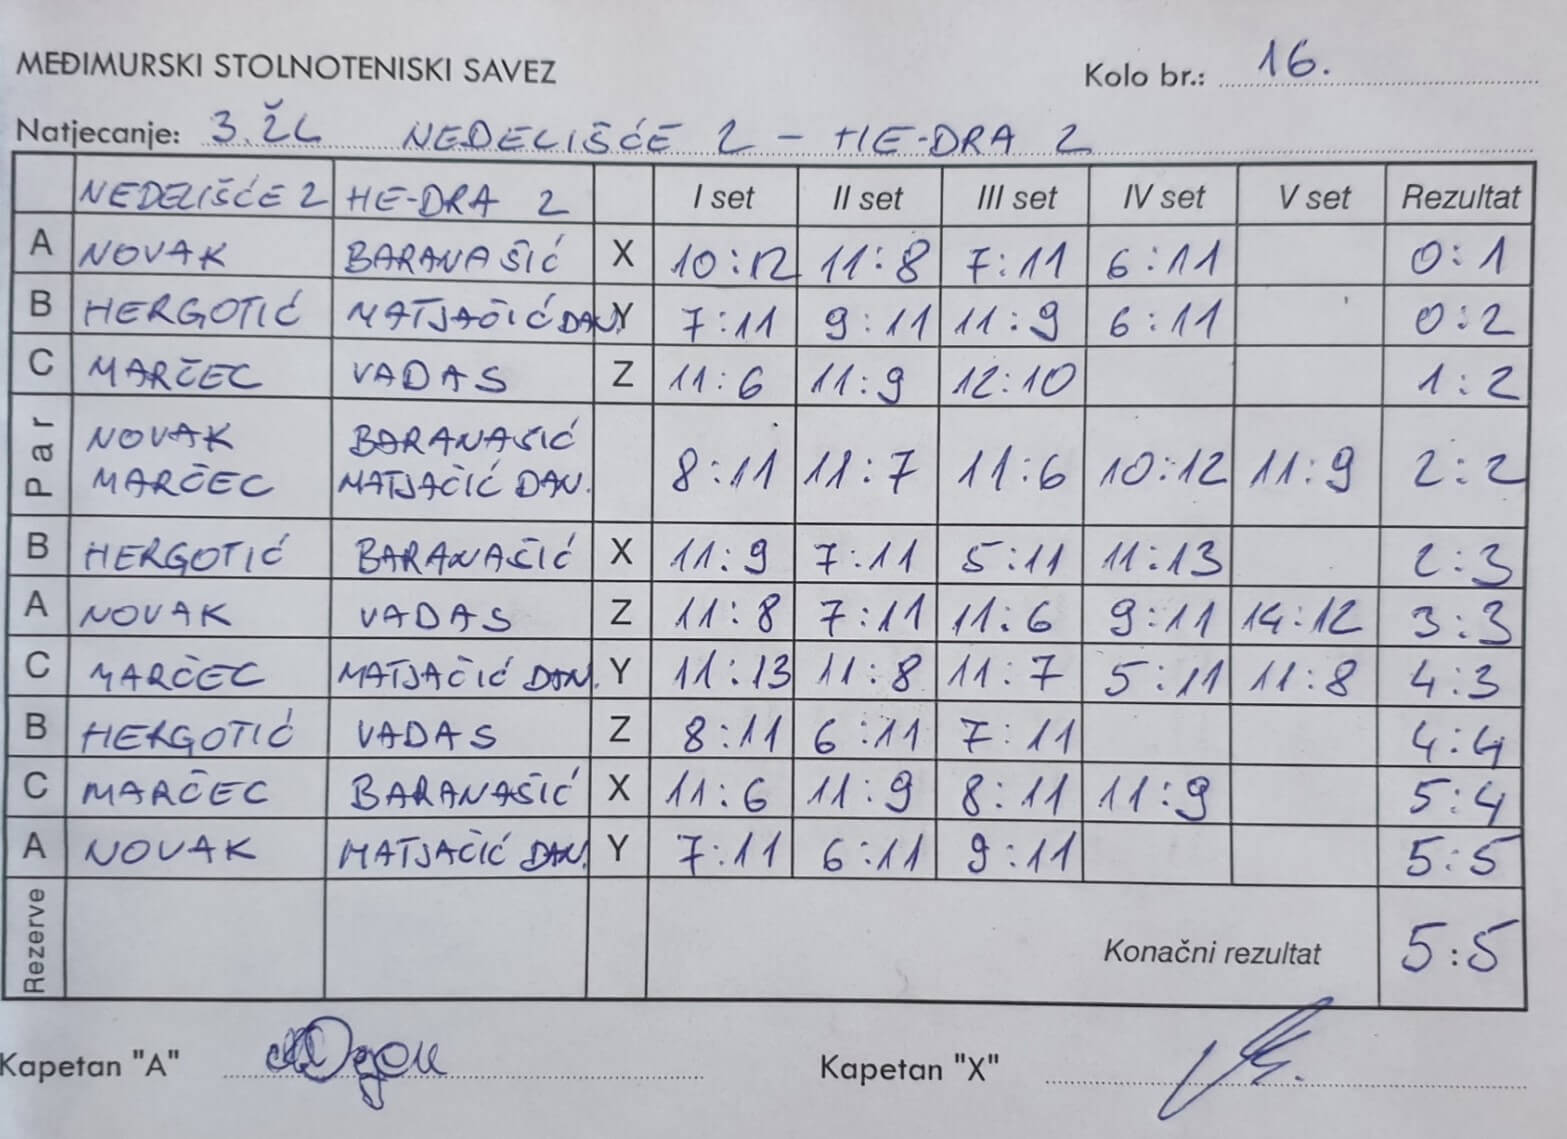 MEĐIMURSKI STOLNOTENISKI SAVEZ
Kolo br.: 16.
Natjecanje: 3.ŽL NEDELIŠĆE 2 - HE-DRA 2
NEDELIŠĆE 2 HE-DRA 2 I set II set III set IV set V set Rezultat
A NOVAK BARANAŠIĆ X 10:12 11:8 7:11 6:11 0:1
B HERGOTIĆ MATJAČIĆ DAN. Y 7:11 9:11 11:9 6:11 0:2
C MARČEC VADAS Z 11:6 11:9 12:10 1:2
Par NOVAK BARANASIĆ
MARČEC MATJAČIĆ DAN. 8:11 11:7 11:6 10:12 11:9 2:2
B HERGOTIĆ BARANAŠIĆ X 11:9 7:11 5:11 11:13 2:3
A NOVAK VADAS Z 11:8 7:11 11:6 9:11 14:12 3:3
C MARČEC MATJAČIĆ DAN. Y 11:13 11:8 11:7 5:11 11:8 4:3
B HERGOTIĆ VADAS Z 8:11 6:11 7:11 4:4
C MARČEC BARANAŠIĆ X 11:6 11:9 8:11 11:9 5:4
A NOVAK MATJAČIĆ DAN. Y 7:11 6:11 9:11 5:5
Rezerve Konačni rezultat 5:5
Kapetan "A" Kapetan "X"